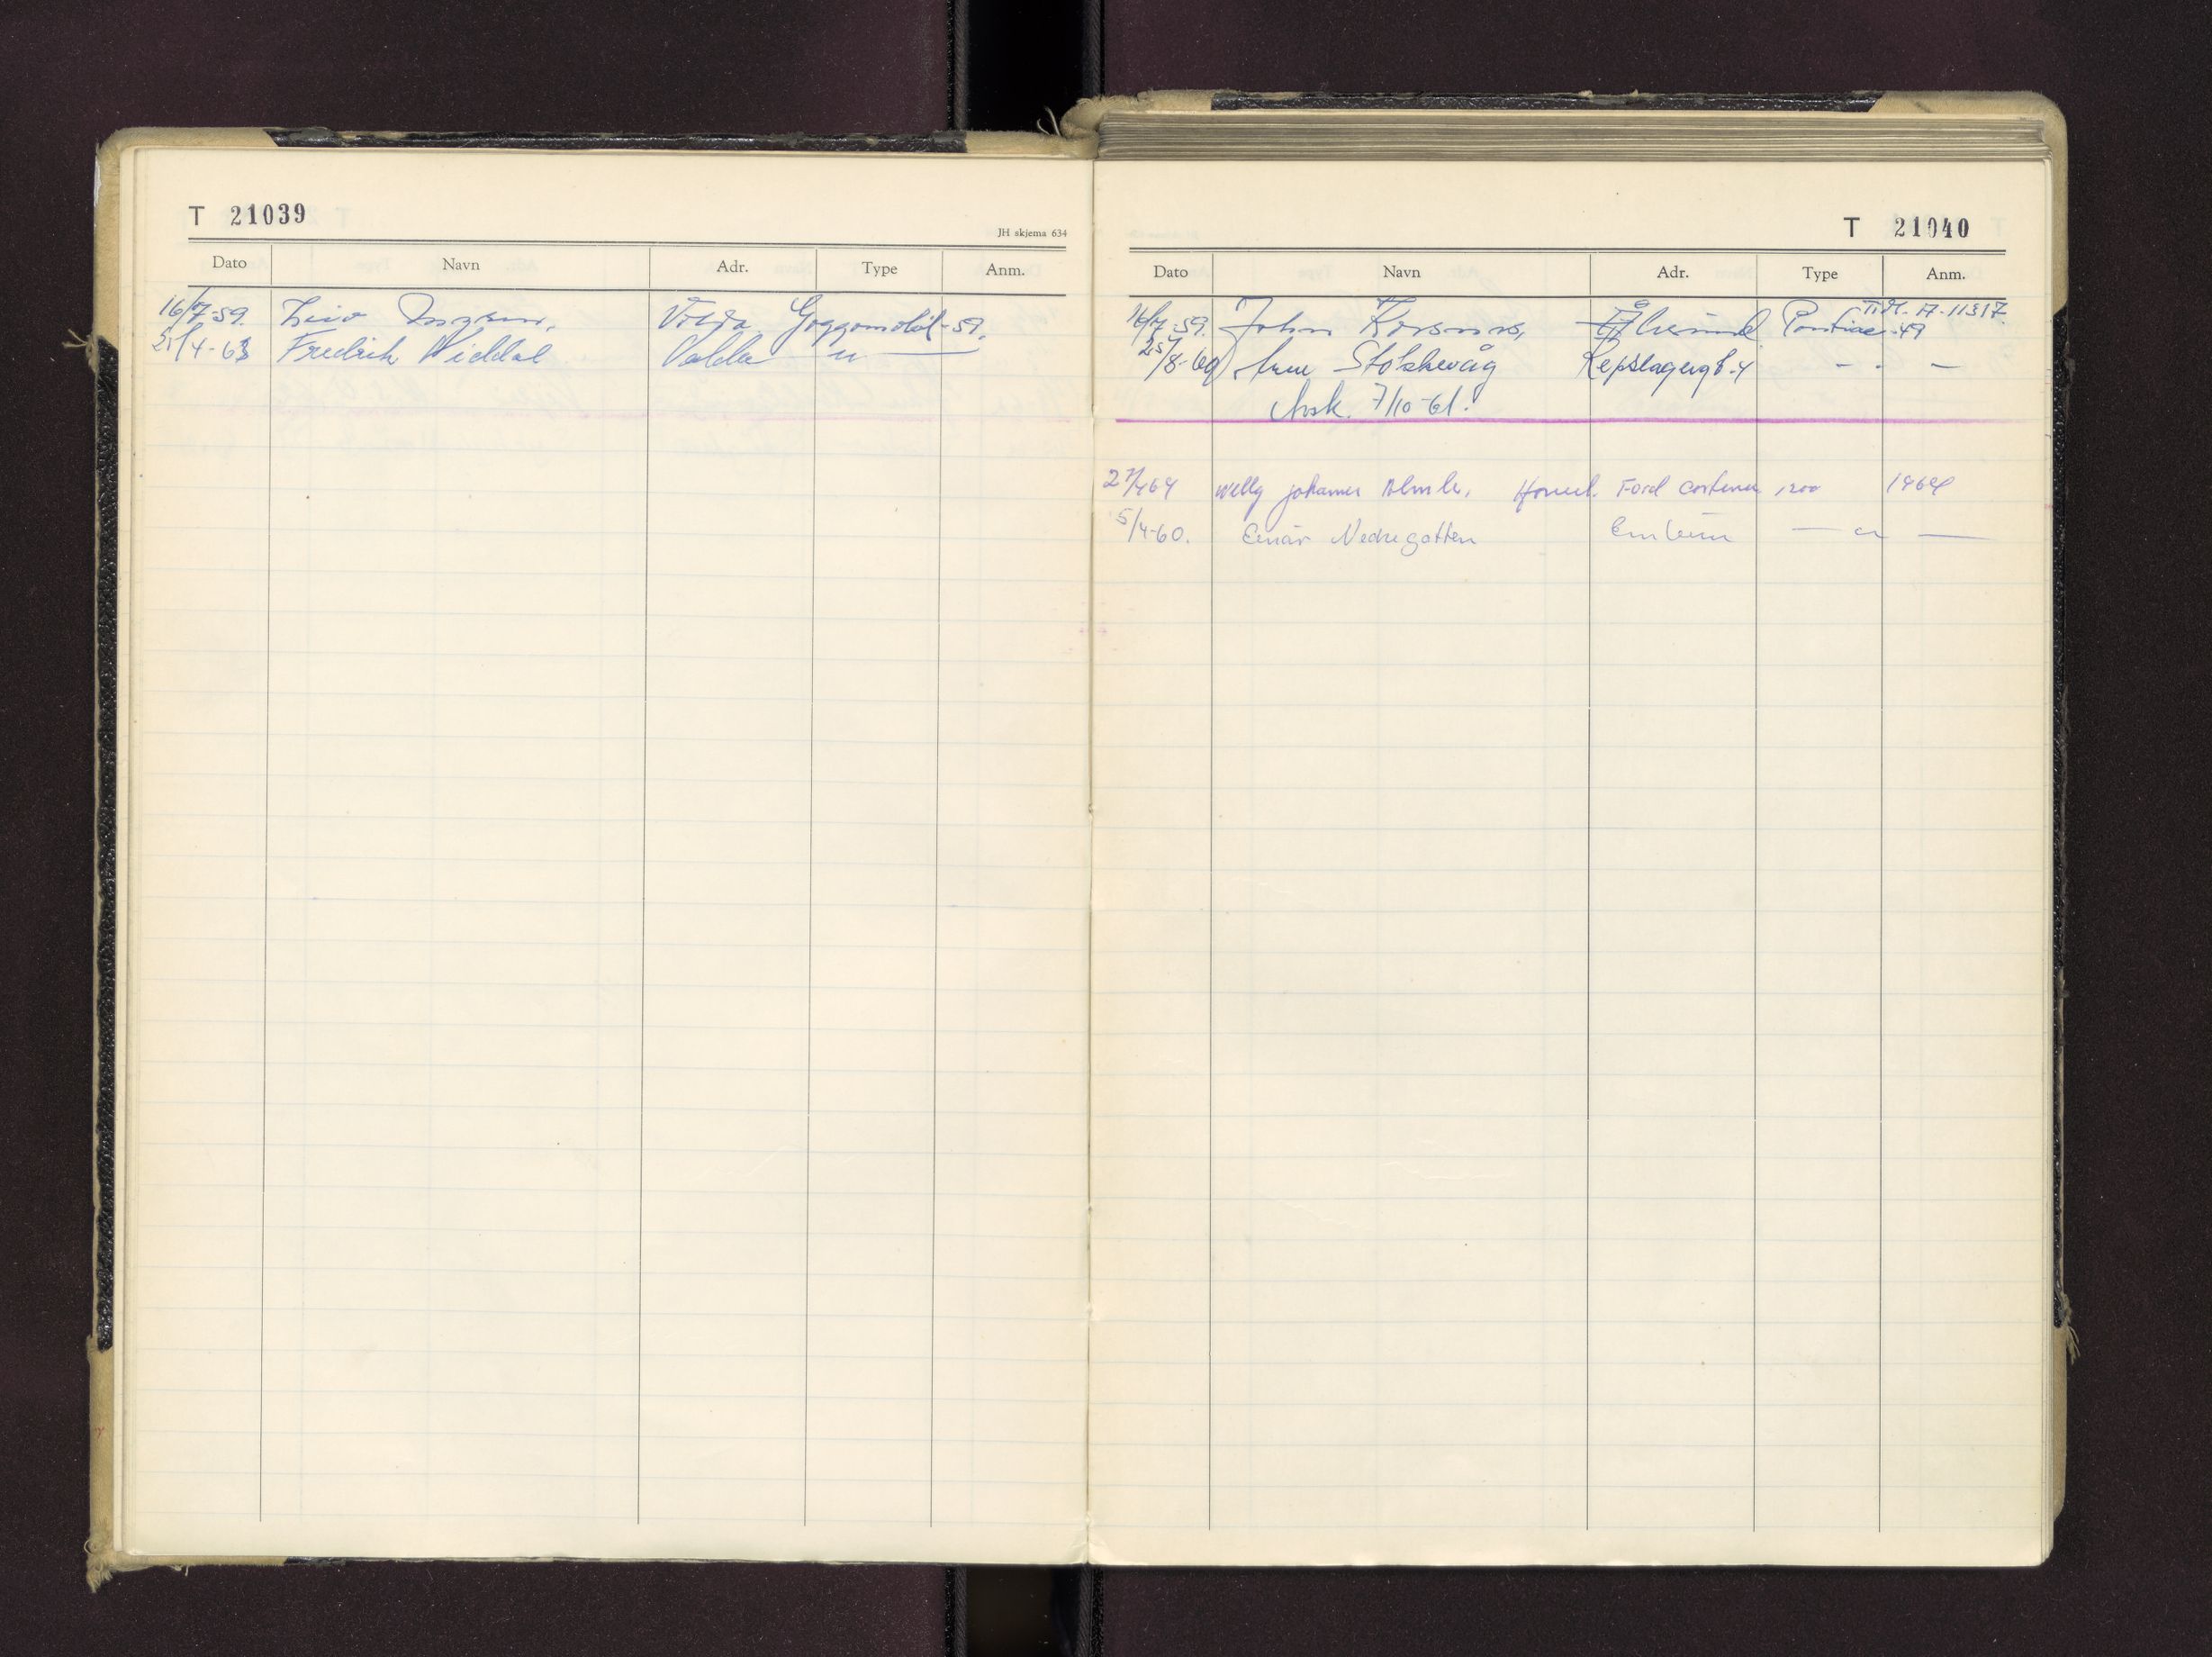 T 21039
JH skjema 634
Dato Navn Adr. Type Anm.
16/7-59. Volda Goggomobil-59.
25/4-63 Fredrik Widdal Volda — " —
T 21040
Dato Navn Adr. Type Anm.
Tidl. A-11317.
16/7-59. John Korsnes, Ålesund Pontiac-49
25/8-60 Arne Stokkevåg Repslagergt. 4 - " -
Avsk. 7/10-61.
27/4 64 Willy Johannes Ford Cortina 1200 1964
5/4-60. Einar Nedregotten Emblem — " —